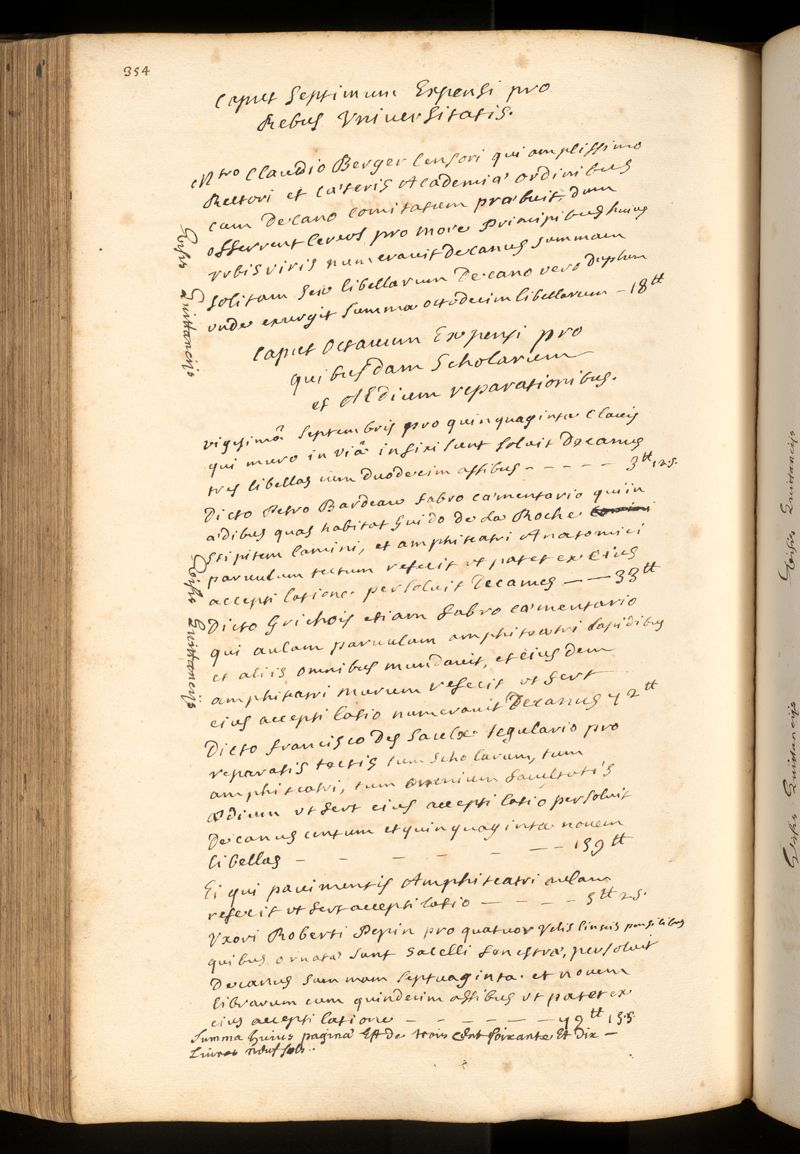 354
Caput Septimum Expensi pro
Rebus Vniuersitatis.
Mtro Claudio Berger Censori qui amplissimo
Rectori et cæteris Academiæ ordinibus
cum Decano comitatum præbuit, dum
offerrent Cereos pro more Principibus huius
vrbis viris numerauit Decanus summam
solitam sex libellarum Decano vero duplum
unde exurgit summa octodecim libellarum – 18 tt
Visis Quittancijs
Caput Octauum Expensi pro
quibusdam Scholarum
et Ædium reparationibus.
vigesimâ Septembris pro quinquaginta Clauis
qui muro in viâ infixi sunt soluit Decanus
tres libellas cum duodecim assibus – – – – – 3 tt 12 s.
Dicto Petro Bardeau fabro cæmentario qui in
ædibus quas habitat Guido de La Roche
stipitem Camini, et amphiteatri Anatomici
paruulum tectum refecit vt patet ex eius
accepti latione persoluit Decanus – – 33 tt
Visis Quittancijs
Dicto Grichois etiam fabro cæmentario
qui aulam paruulam amphiteatri Lapidibus
et aliis omnibus mundauit, et eiusdem
amphiteatri murum refecit vt fert
eius accepti latio numerauit Decanus 42 tt
Dicto francisco Des Saulx tegulario pro
reparatis tectis tum scholarum, tum
amphiteatri, tum omnium facultatis
ædium vt fert eius accepti latio persoluit
Decanus centum et quinquaginta nouem
libellas – – – – – – – 159 tt
Ei qui pauimentis Amphiteatri aulam
refecit vt fert accepti latio – – – – 5 tt 2 s.
Vxori Roberti Pepin pro quatuor velis linteis pensilibus
quibus ornatæ sunt sacelli fenestræ, persoluit
Decanus summam septuaginta et nouem
librarum cum quindecim assibus vt patet ex
eius accepti latione – – – – – – 79 tt 15 s
Summa huius paginæ Est de trois Cent soixante Et dix –
Liures neuf sols..